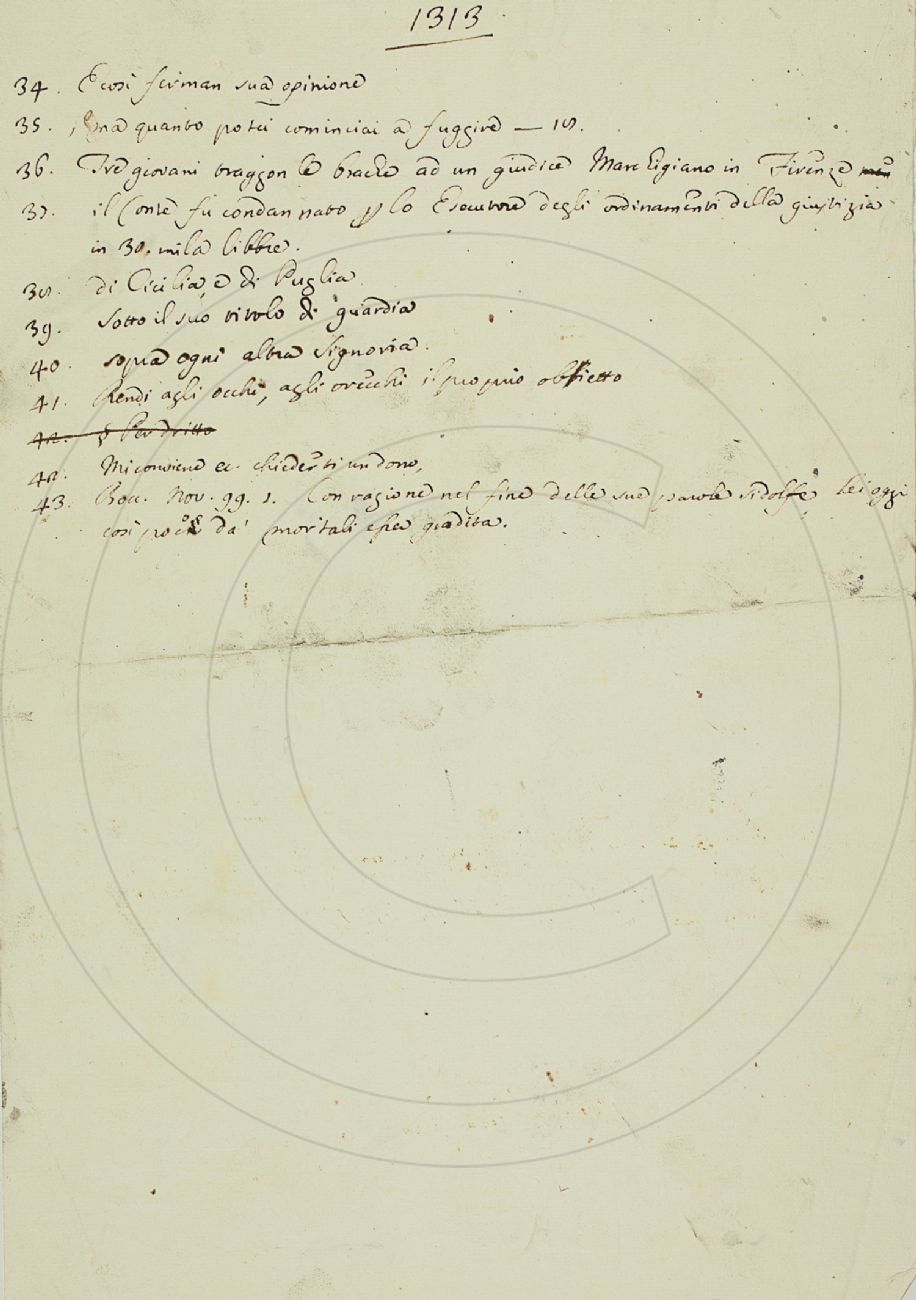 1313
34. E così ferman sua opinione
35. , Ema quanto potei cominciai a fuggire — 18.
36. Tre giovani traggon le brache ad un giudice Marchigiano in Firenze
37. il Conte fu condannato p lo Esecutore degli ordinamenti della giustizia
in 30. mila libbre.
38. di Cicilia, e di Puglia
39. Sotto il suo titolo di guardia
40. sopra ogni altra Signoria.
41. Rendi agli occhi, agli orecchi il proprio obbietto
42. Per dritto
42. Mi conviene ec. chiederti un dono,
43. Bocc. Nov. 99. 1. Con ragione nel fine delle sue parole si dolfe, lei oggi
così poco da' mortali esser gradita.